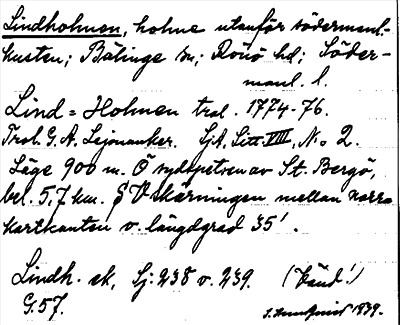 Lindholmen, holme utanför södermanl.-
kusten; Bälinge sn; Rönö hd; Söder-
manl. l.
Lind = Holmen trol. 1774-76.
Trol. G. A. Lejonanker. SjA, Litt. VIII, No 2.
Läge 900 m. Ö sydspetsen av St. Bergö,
bel. 5,7 km. S V skärningen mellan norra
kartkanten o. längdgrad 35'.
Lindh. ek, Sj: 238 o. 239. (Länd!)
G. 57.
1939.